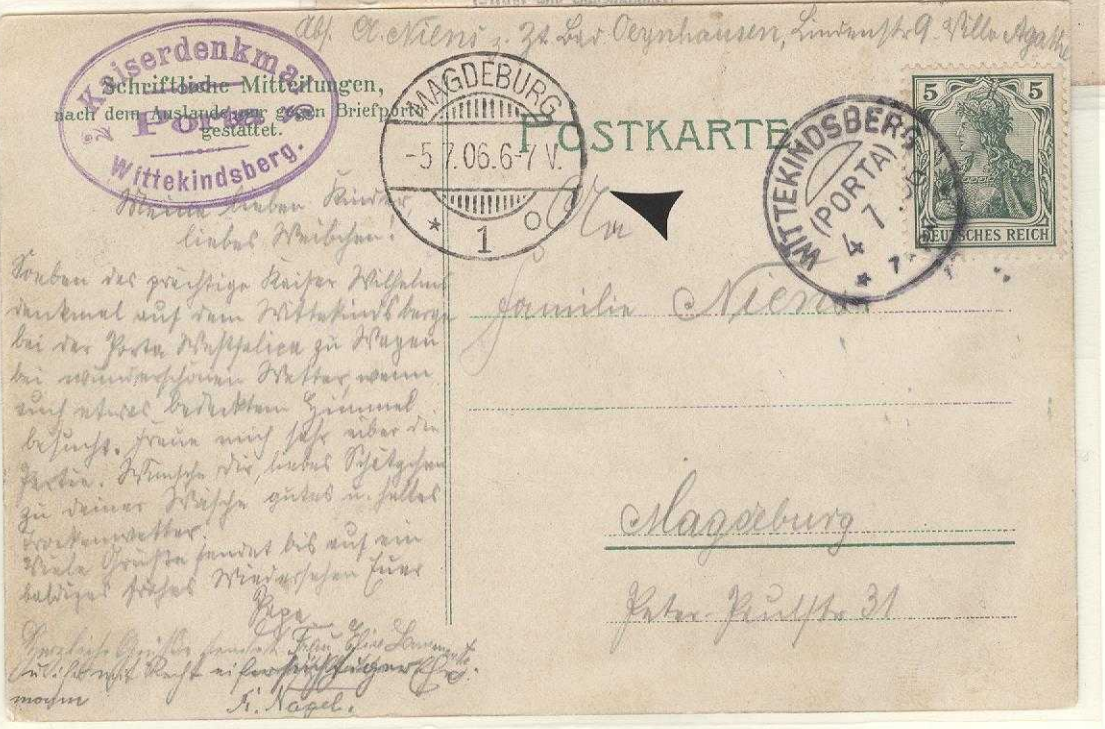 Abs. A. Niens z. Zt. Bad Oeynhausen, Lindenstr 9. Villa Agathe
Kaiserdenkmal
Porta
Wittekindsberg.
Schriftliche Mitteilungen,
nach dem Auslande nur gegen Briefporto
gestattet.
MAGDEBURG
-5.7.06.6-7V.
* 1 o
POSTKARTE
WITTEKINDSBERG
(PORTA)
4 7
5 5
DEUTSCHES REICH
Meine lieben Kinder,
liebes Weibchen!
Soeben das prächtige Kaiser Wilhelm
denkmal auf dem Wittekindsberge
bei der Porta Westfalica zu Wagen
bei wunderschönem Wetter, wenn
auch etwas bedecktem Himmel
besucht. Freue mich sehr über die
Partie. Wünsche Dir, liebes Schätzchen
zu deiner Wäsche gutes u. helles
Trockenwetter.
Viele Grüße sendet bis auf ein
baldiges frohes Wiedersehen Euer
Papa
Herzliche Grüße sendet Frau
mit Recht eifersüchtiger Ehe-
mann
Fr. Nagel.
An
Familie Niens
Magdeburg
Peter-Paulstr 31